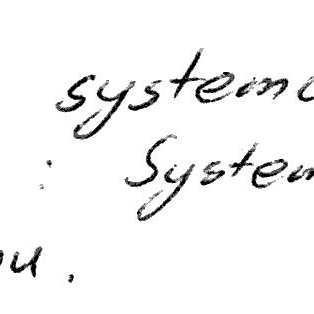 system
: System
u.